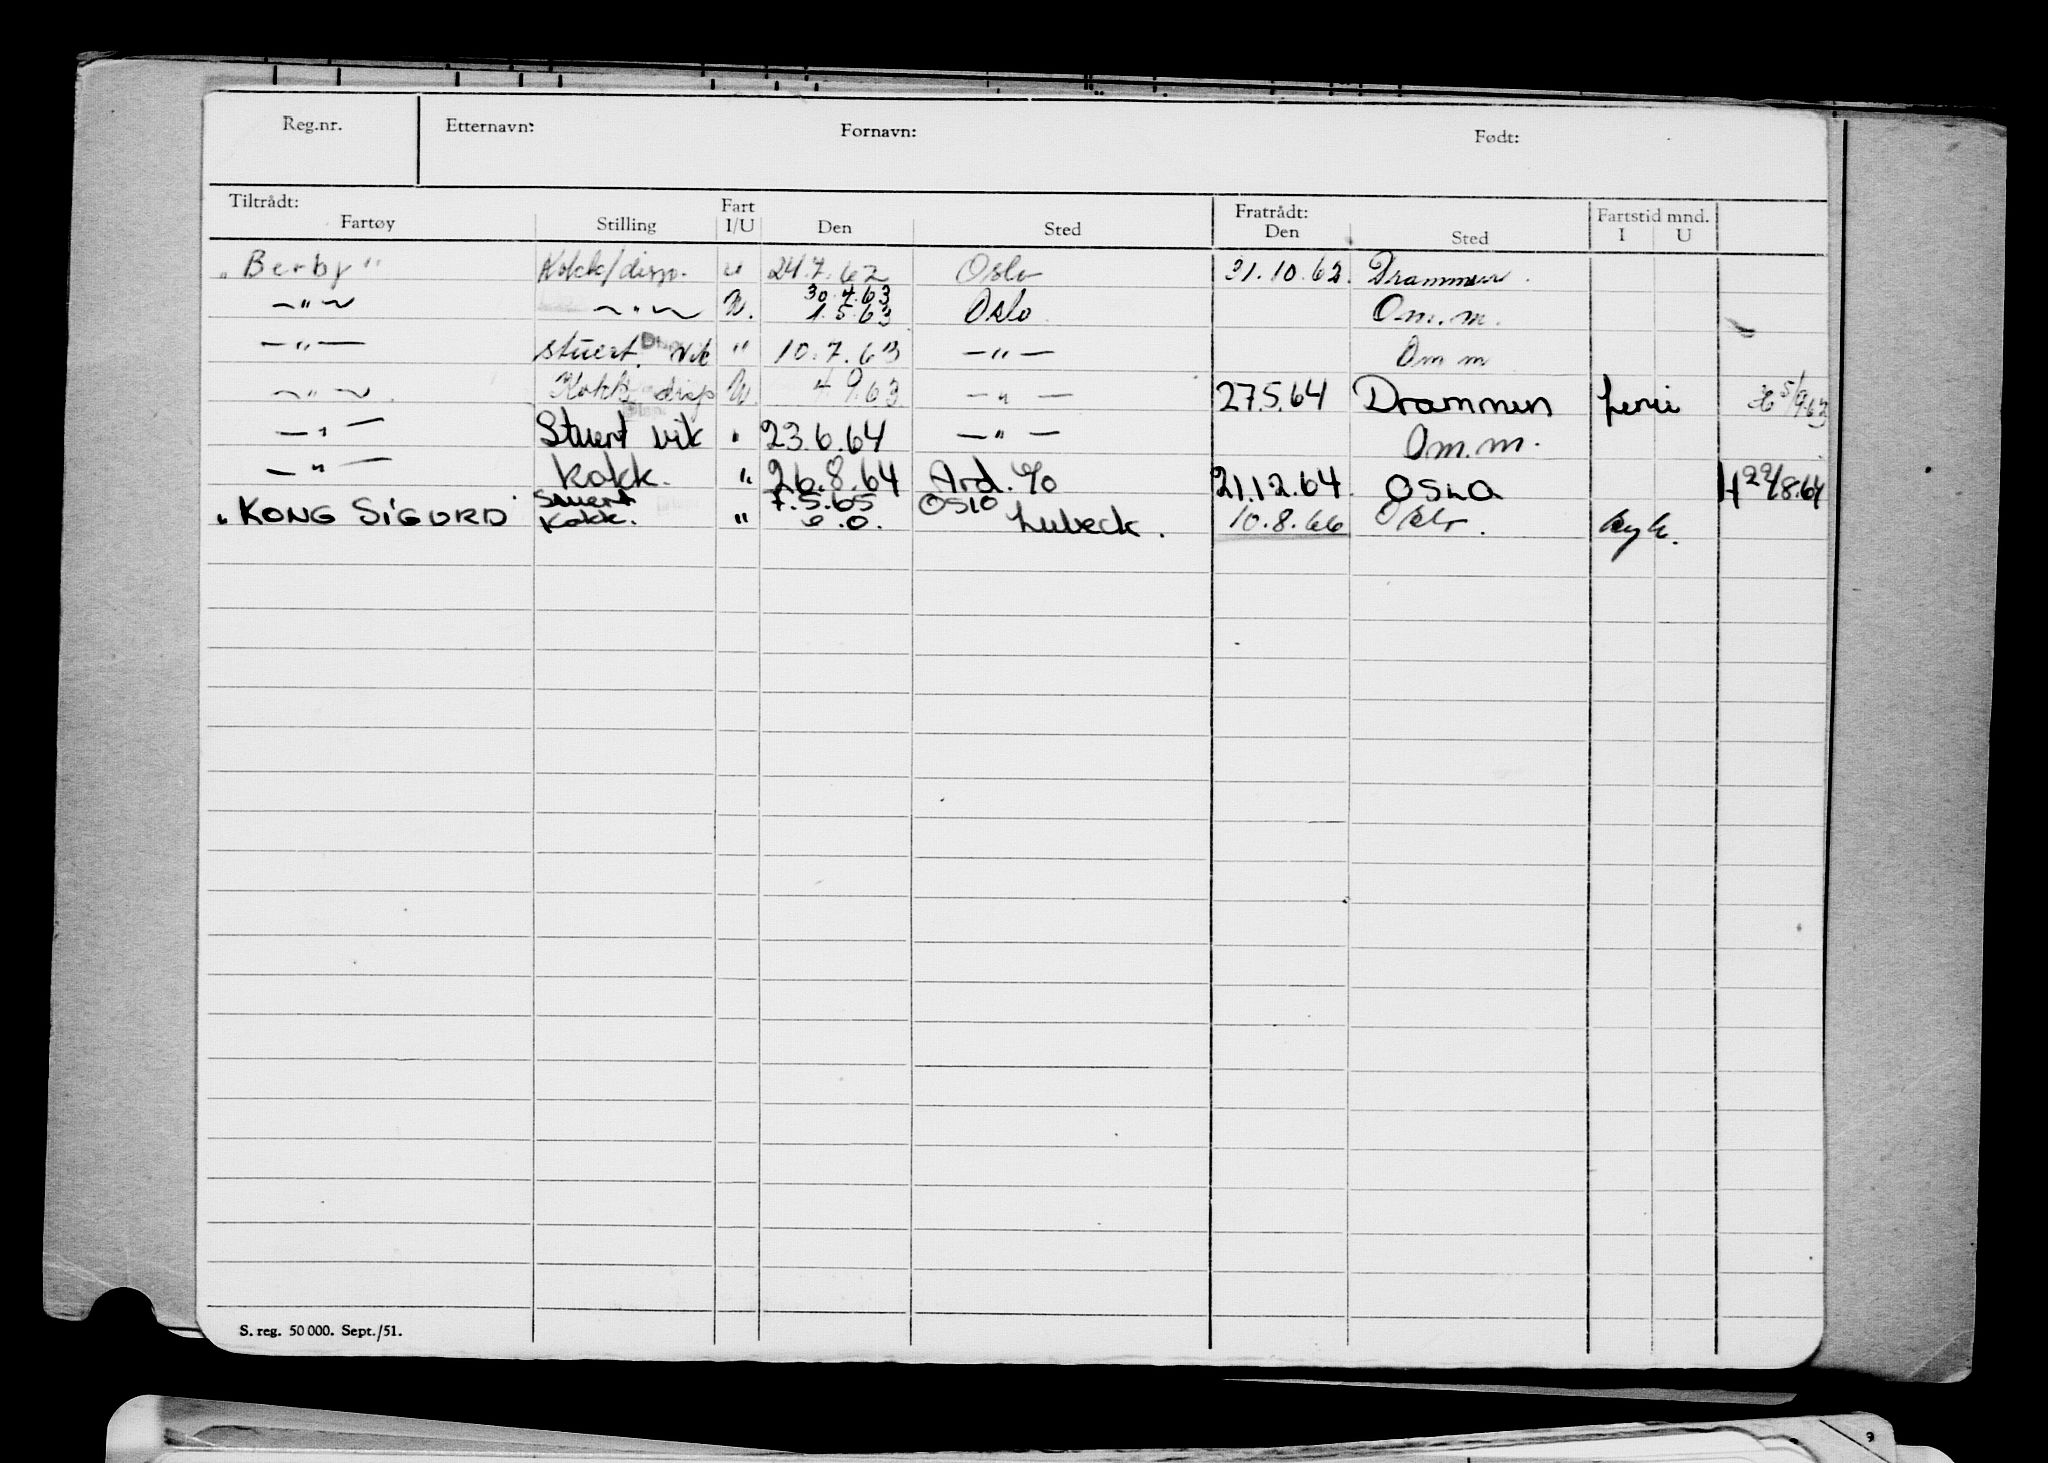 Reg.nr. Etternavn: Fornavn: Født:
Tiltrådt: Fart Fratrådt: Fartstid mnd.
Fartøy Stilling I/U Den Sted Den Sted I U
"Berby" Kokk/disp. u 24.7.62 Oslo 31.10.62. Drammen.
—"— —"— U. 30.4.63 1.5.63 Oslo Om.m.
—"— stuert. vik " 10.7.63 —"— Om m
—"— Kokk disp U. 4.9.63 —"— 27.5.64 Drammen ferie 5/9.63
—"— Stuert vik " 23.6.64 —"— Om.m.
—"— kokk. " 26.8.64 Ard. 21.12.64. OSLO H 22/8.64
Stuert 7.5.65 OSLO
"KONG SIGURD" Kokk. " Lubeck. 10.8.66 Oslo. syk.
S. reg. 50 000. Sept./51.
9